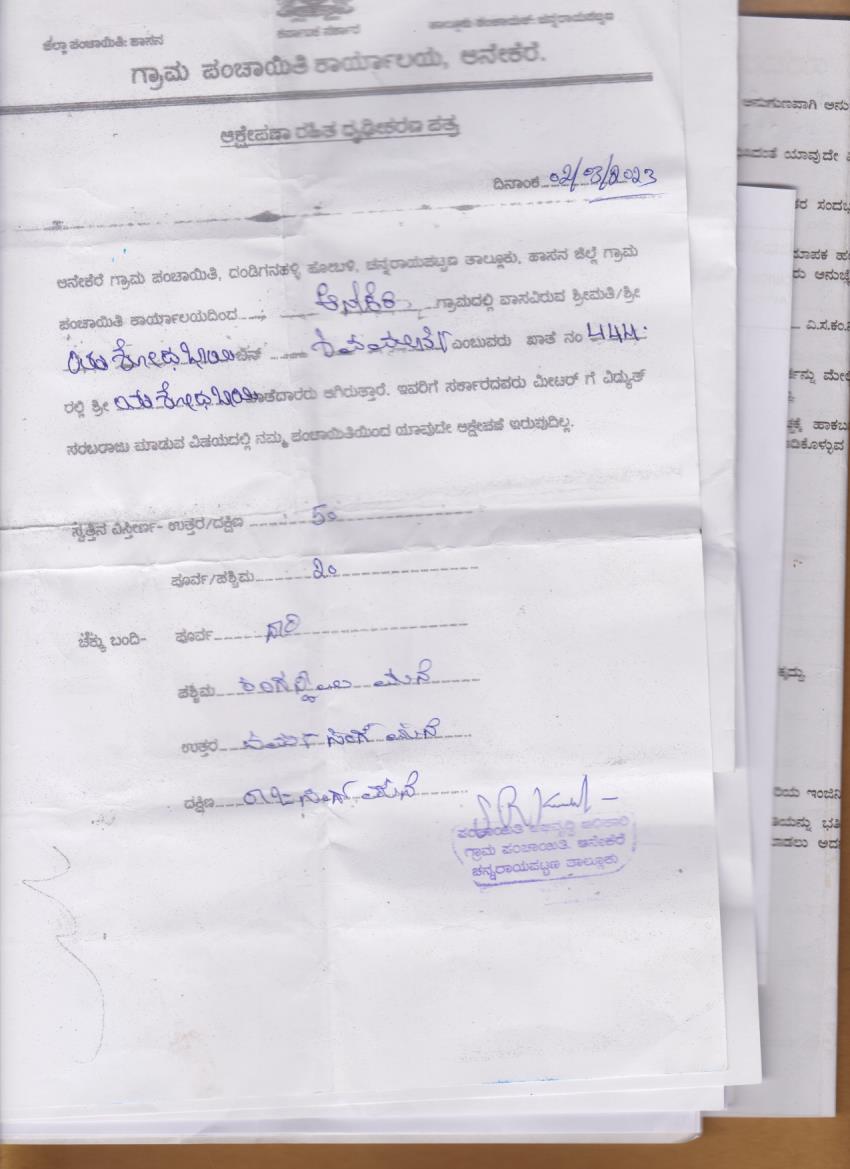 ಜಿಲ್ಲಾ ಪಂಚಾಯಿತಿ: ಹಾಸನ
ಕರ್ನಾಟಕ ಸರ್ಕಾರ
ತಾಲ್ಲೂಕು ಪಂಚಾಯಿತಿ: ಚನ್ನರಾಯಪಟ್ಟಣ
ಗ್ರಾಮ ಪಂಚಾಯಿತಿ ಕಾರ್ಯಾಲಯ, ಆನೇಕೆರೆ.
ಆಕ್ಷೇಪಣಾ ರಹಿತ ದೃಢೀಕರಣ ಪತ್ರ
ದಿನಾಂಕ 02/3/2023
ಆನೇಕೆರೆ ಗ್ರಾಮ ಪಂಚಾಯಿತಿ, ದಂಡಿಗನಹಳ್ಳಿ ಹೋಬಳಿ, ಚನ್ನರಾಯಪಟ್ಟಣ ತಾಲ್ಲೂಕು, ಹಾಸನ ಜಿಲ್ಲೆ ಗ್ರಾಮ
ಪಂಚಾಯಿತಿ ಕಾರ್ಯಾಲಯದಿಂದ ಆನೆಕೆರೆ ಗ್ರಾಮದಲ್ಲಿ ವಾಸವಿರುವ ಶ್ರೀಮತಿ/ಶ್ರೀ
ಯಶೋಧಬಾಯಿ ಬಿನ್ ಎಂಬುವರು ಖಾತೆ ನಂ 444
ರಲ್ಲಿ ಶ್ರೀ ಯಶೋಧಬಾಯಿ ಖಾತೆದಾರರು ಆಗಿರುತ್ತಾರೆ. ಇವರಿಗೆ ಸರ್ಕಾರದವರು ಮೀಟರ್ ಗೆ ವಿದ್ಯುತ್
ಸರಬರಾಜು ಮಾಡುವ ವಿಷಯದಲ್ಲಿ ನಮ್ಮ ಪಂಚಾಯಿತಿಯಿಂದ ಯಾವುದೇ ಆಕ್ಷೇಪಣೆ ಇರುವುದಿಲ್ಲ.
ಸ್ವತ್ತಿನ ವಿಸ್ತೀರ್ಣ- ಉತ್ತರ/ದಕ್ಷಿಣ 50
ಪೂರ್ವ/ಪಶ್ಚಿಮ 20
ಚೆಕ್ಕು ಬಂದಿ- ಪೂರ್ವ
ಪಶ್ಚಿಮ ಮನೆ
ಉತ್ತರ ಮನೆ
ದಕ್ಷಿಣ ಮನೆ
ಪಂಚಾಯಿತಿ ಅಭಿವೃದ್ಧಿ ಅಧಿಕಾರಿ
ಗ್ರಾಮ ಪಂಚಾಯಿತಿ. ಆನೇಕೆರೆ
ಚನ್ನರಾಯಪಟ್ಟಣ ತಾಲ್ಲೂಕು
ಅನುಗುಣವಾಗಿ ಅನು
ಯಾವುದೇ
ಸಂದ
ವಿ.ಸ.ಕಂ.
ಮೇ
ಹಾಕಬ
ಇಂಜಿನಿ